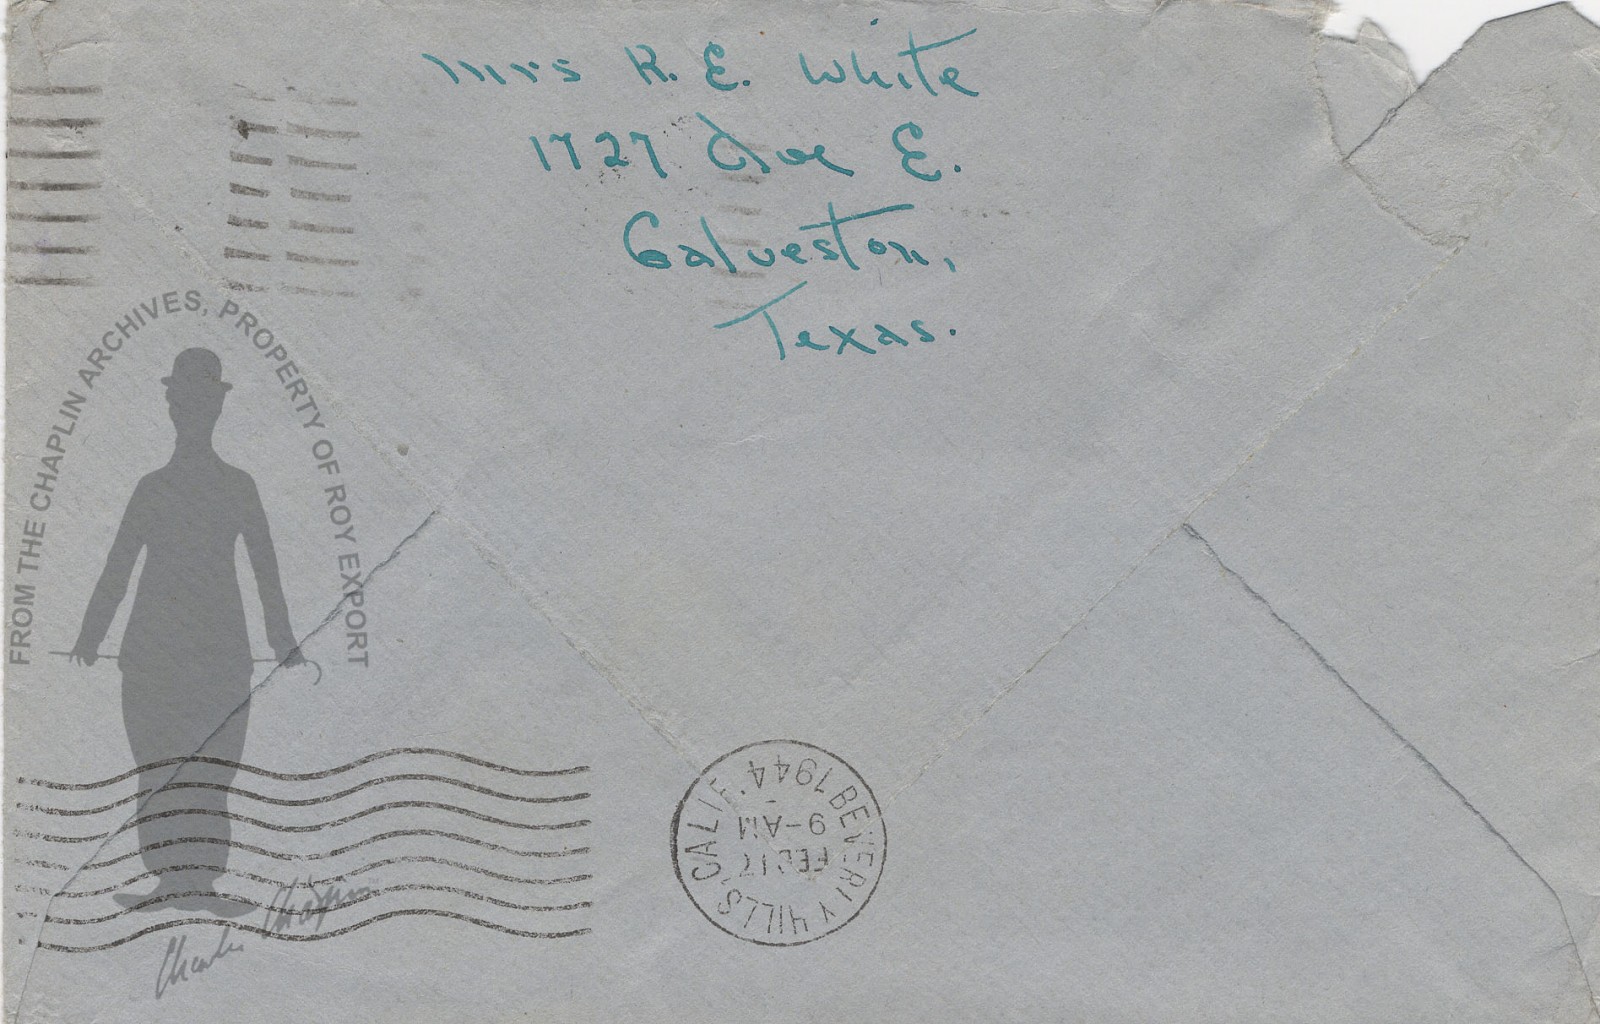 Mrs R. E. White
1727 Ave E.
Galveston,
Texas.
FROM THE CHAPLIN ARCHIVES, PROPERTY OF ROY EXPORT
Charles Chaplin
BEVERLY HILLS, CALIF. 1944
FEB 17
9-AM